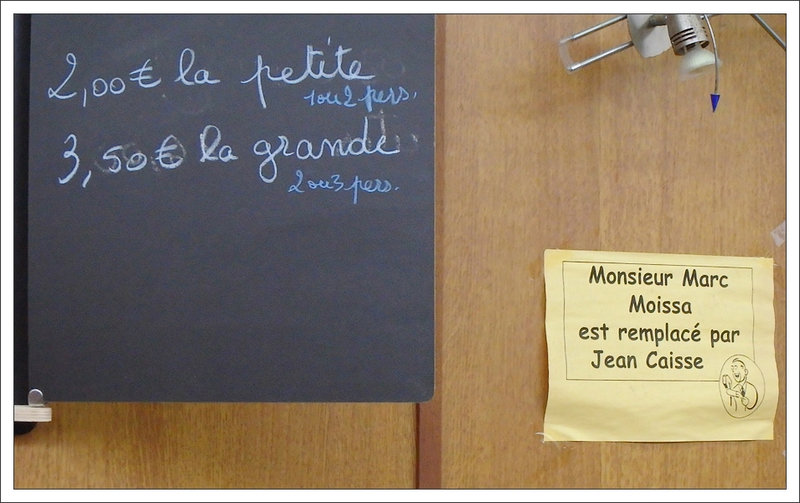 2,00€ la petite
1 ou 2 pers.
3,50€ la grande
2 ou 3 pers.
Monsieur Marc
Moissa
est remplacé par
Jean Caisse